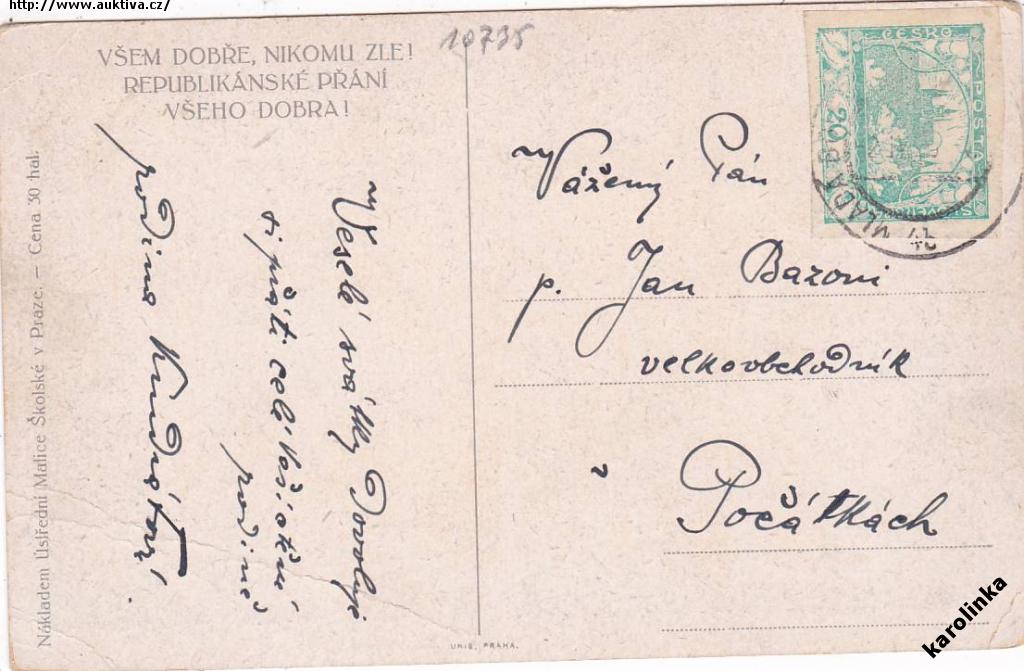 http://www.auktiva.cz/
VŠEM DOBŘE, NIKOMU ZLE!
REPUBLIKÁNSKÉ PŘÁNÍ
VŠEHO DOBRA!
10735
ČESKO
POŠTA
20
MLADÁ
Vážený Pán
p. Jan Bazoni
velkoobchodník
v
Počátkách
Veselé svátky dovoluje
si přáti celé Vaší ctěné
rodině
rodina
Nákladem Ústřední Matice Školské v Praze. — Cena 30 hal.
UNIE, PRAHA.
karolinka